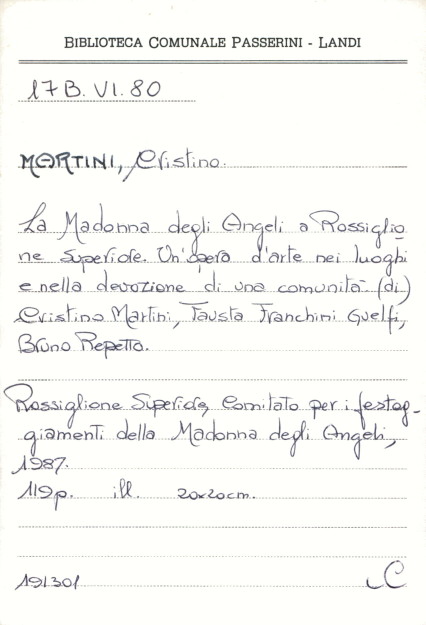 BIBLIOTECA COMUNALE PASSERINI - LANDI
17B. VI. 80
MARTINI, Cristino.
La Madonna degli Angeli a Rossiglio
ne Superiore. Un'opera d'arte nei luoghi
e nella devozione di una comunità (di)
Cristino Martini, Fausta Franchini Guelfi,
Bruno Repetto.
Rossiglione Superiore, Comitato per i festeg-
giamenti della Madonna degli Angeli,
1987.
119p. ill. 20x20cm.
191301
C